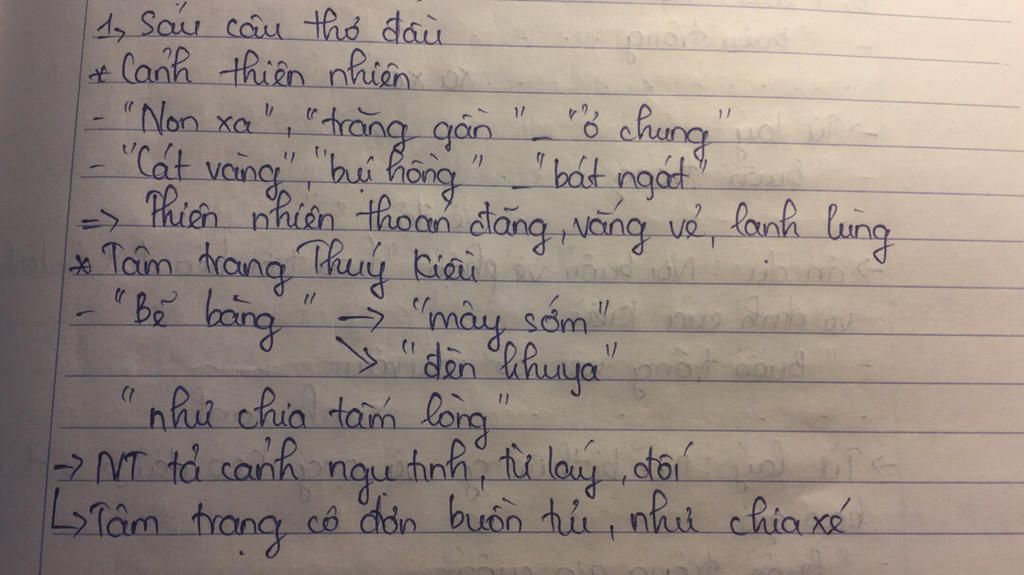 1, Sáu câu thơ đầu
* Cảnh thiên nhiên
- "Non xa", "trăng gần" - "ở chung"
- "Cát vàng", "bụi hồng" - "bát ngát"
=> Thiên nhiên thoáng đãng, vắng vẻ, lạnh lùng
* Tâm trạng Thuý Kiều
- "Bẽ bàng" -> "mây sớm"
↘ "đèn khuya"
"như chia tấm lòng"
-> NT tả cảnh ngụ tình, từ láy, đối
↳ Tâm trạng cô đơn buồn tủi, như chia xé